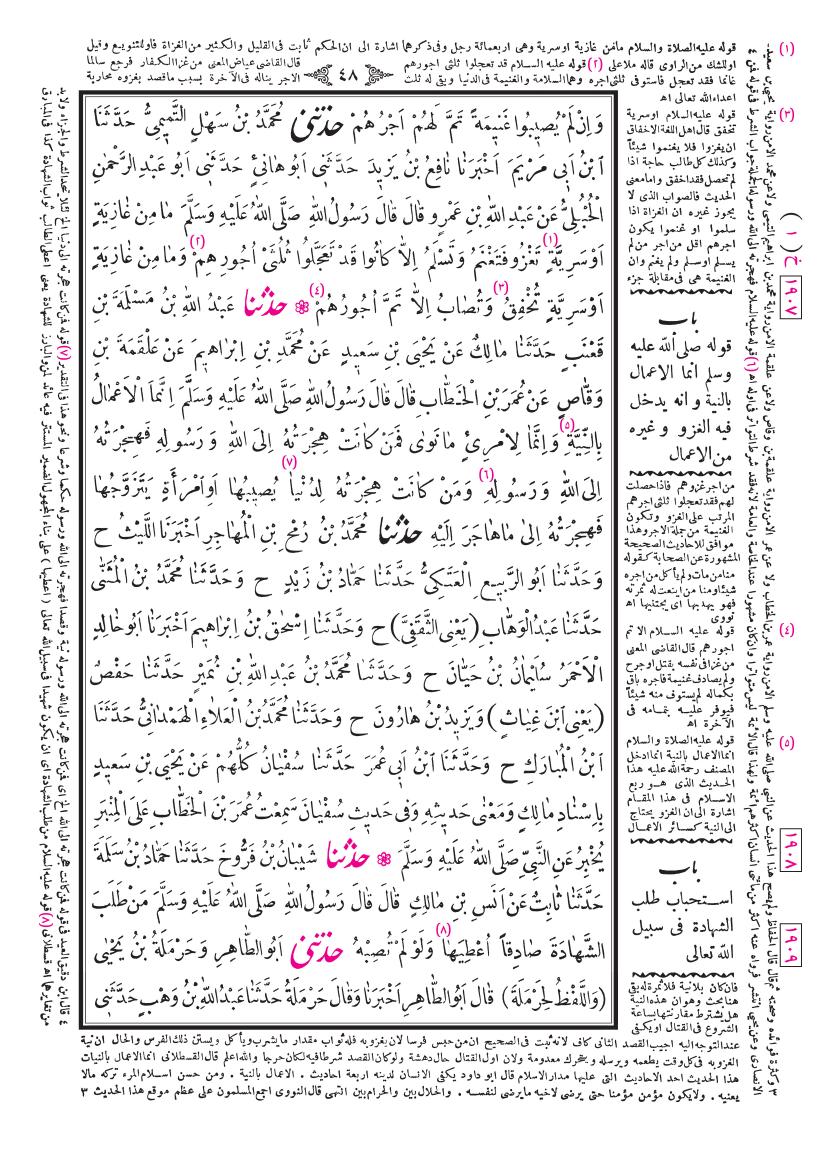 ٤٨
قوله عليه الصلاة والسلام مامن غازية اوسرية وهى اربعمائة رجل وفى ذكرها اشارة الى ان الحكم ثابت فى القليل والكثير من الغزاة فاو للتنويع وقيل
او للشك من الراوى قاله ملاعلى (٢) قوله عليه السلام قد تعجلوا ثلثى اجورهم
قال القاضى عياض المعنى من غزا الكفار فرجع سالما
غانما فقد تعجل فاستوفى ثلثى اجره وهما السلامة والغنيمة فى الدنيا وبقى له ثلث
الاجر يناله فى الآخرة بسبب ماقصد بغزوه محاربة
اعداءالله تعالى اه
وَاِنْ لَمْ يُصِيبُوا غَنِيمَةً تَمَّ لَهُمْ اَجْرُهُمْ حَدَّثَنِى مُحَمَّدُ بْنُ سَهْلٍ التَّمِيمِىُّ حَدَّثَنَا
ابْنُ اَبِى مَرْيَمَ اَخْبَرَنَا نَافِعُ بْنُ يَزِيدَ حَدَّثَنِى اَبُو هَانِئٍ حَدَّثَنِى اَبُو عَبْدِ الرَّحْمٰنِ
الْحُبُلِىُّ عَنْ عَبْدِ اللهِ بْنِ عَمْرٍو قَالَ قَالَ رَسُولُ اللهِ صَلَّى اللهُ عَلَيْهِ وَسَلَّمَ مَا مِنْ غَازِيَةٍ
اَوْ سَرِيَّةٍ (١) تَغْزُو فَتَغْنَمُ وَتَسْلَمُ اِلَّا كَانُوا قَدْ تَعَجَّلُوا ثُلُثَىْ اُجُورِهِمْ (٢) وَمَا مِنْ غَازِيَةٍ
اَوْ سَرِيَّةٍ تُخْفِقُ (٣) وَتُصَابُ اِلَّا تَمَّ اُجُورُهُمْ (٤) ❁ حَدَّثَنَا عَبْدُ اللهِ بْنُ مَسْلَمَةَ بْنِ
قَعْنَبٍ حَدَّثَنَا مَالِكٌ عَنْ يَحْيَى بْنِ سَعِيدٍ عَنْ مُحَمَّدِ بْنِ اِبْرَاهِيمَ عَنْ عَلْقَمَةَ بْنِ
وَقَّاصٍ عَنْ عُمَرَ بْنِ الْخَطَّابِ قَالَ قَالَ رَسُولُ اللهِ صَلَّى اللهُ عَلَيْهِ وَسَلَّمَ اِنَّمَا الْاَعْمَالُ
بِالنِّيَّةِ (٥) وَاِنَّمَا لِامْرِئٍ مَا نَوَى فَمَنْ كَانَتْ هِجْرَتُهُ اِلَى اللهِ وَرَسُولِهِ فَهِجْرَتُهُ
اِلَى اللهِ وَرَسُولِهِ (٦) وَمَنْ كَانَتْ هِجْرَتُهُ لِدُنْيَا (٧) يُصِيبُهَا اَوِ امْرَأَةٍ يَتَزَوَّجُهَا
فَهِجْرَتُهُ اِلَى مَا هَاجَرَ اِلَيْهِ حَدَّثَنَا مُحَمَّدُ بْنُ رُمْحِ بْنِ الْمُهَاجِرِ اَخْبَرَنَا اللَّيْثُ ح
وَحَدَّثَنَا اَبُو الرَّبِيعِ الْعَتَكِىُّ حَدَّثَنَا حَمَّادُ بْنُ زَيْدٍ ح وَحَدَّثَنَا مُحَمَّدُ بْنُ الْمُثَنَّى
حَدَّثَنَا عَبْدُ الْوَهَّابِ (يَعْنِى الثَّقَفِىَّ) ح وَحَدَّثَنَا اِسْحٰقُ بْنُ اِبْرَاهِيمَ اَخْبَرَنَا اَبُو خَالِدٍ
الْاَحْمَرُ سُلَيْمَانُ بْنُ حَيَّانَ ح وَحَدَّثَنَا مُحَمَّدُ بْنُ عَبْدِ اللهِ بْنِ نُمَيْرٍ حَدَّثَنَا حَفْصٌ
(يَعْنِى ابْنَ غِيَاثٍ) وَيَزِيدُ بْنُ هَارُونَ ح وَحَدَّثَنَا مُحَمَّدُ بْنُ الْعَلَاءِ الْهَمْدَانِىُّ حَدَّثَنَا
ابْنُ الْمُبَارَكِ ح وَحَدَّثَنَا ابْنُ اَبِى عُمَرَ حَدَّثَنَا سُفْيَانُ كُلُّهُمْ عَنْ يَحْيَى بْنِ سَعِيدٍ
بِاِسْنَادِ مَالِكٍ وَمَعْنَى حَدِيثِهِ وَفِى حَدِيثِ سُفْيَانَ سَمِعْتُ عُمَرَ بْنَ الْخَطَّابِ عَلَى الْمِنْبَرِ
يُخْبِرُ عَنِ النَّبِىِّ صَلَّى اللهُ عَلَيْهِ وَسَلَّمَ ❁ حَدَّثَنَا شَيْبَانُ بْنُ فَرُّوخَ حَدَّثَنَا حَمَّادُ بْنُ سَلَمَةَ
حَدَّثَنَا ثَابِتٌ عَنْ اَنَسِ بْنِ مَالِكٍ قَالَ قَالَ رَسُولُ اللهِ صَلَّى اللهُ عَلَيْهِ وَسَلَّمَ مَنْ طَلَبَ
الشَّهَادَةَ صَادِقًا اُعْطِيَهَا (٨) وَلَوْ لَمْ تُصِبْهُ حَدَّثَنِى اَبُو الطَّاهِرِ وَحَرْمَلَةُ بْنُ يَحْيَى
(وَاللَّفْظُ لِحَرْمَلَةَ) قَالَ اَبُو الطَّاهِرِ اَخْبَرَنَا وَقَالَ حَرْمَلَةُ حَدَّثَنَا عَبْدُ اللهِ بْنُ وَهْبٍ حَدَّثَنِى
(١)
(٣)
(٤)
(٥)
١٩٠٧
١٩٠٨
١٩٠٩
قوله عليه السلام اوسرية
تخفق قال اهل اللغة الاخفاق
ان يغزوا فلا يغنموا شيئاً
وكذلك كل طالب حاجة اذا
لم تحصل فقد اخفق واما معنى
الحديث فالصواب الذى لا
يجوز غيره ان الغزاة اذا
سلموا او غنموا يكون
اجرهم اقل من اجر من لم
يسلم او سلم ولم يغنم وان
الغنيمة هى فى مقابلة جزء
باب
قوله صلى الله عليه
وسلم انما الاعمال
بالنية وانه يدخل
فيه الغزو وغيره
من الاعمال
من اجر غزوهم فاذا حصلت
لهم فقد تعجلوا ثلثى اجرهم
المرتب على الغزو وتكون
الغنيمة من جملة الاجر وهذا
موافق للاحاديث الصحيحة
المشهورة عن الصحابة كقوله
منا من مات ولم يأكل من اجره
شيئا ومنا من اينعت له ثمرته
فهو يهدبها اى يجتنيها اه
نووى
قوله عليه السلام الا تم
اجورهم قال القاضى المعنى
من غزا فى نفسه بقتل او جرح
ولم يصادف غنيمة فاجره باق
بكماله لم يستوف منه شيئاً
فيوفر عليه بتمامه فى
الآخرة اه
قوله عليه الصلاة والسلام
انما الاعمال بالنية انما ادخل
المصنف رحمة الله عليه هذا
الحديث الذى هو ربع
الاسلام فى هذا المقام
اشارة الى ان الغزو يحتاج
الى النية كسائر الاعمال
باب
استحباب طلب
الشهادة فى سبيل
الله تعالى
عند التوجه اليه اجيب القصد الثانى كافى لانه ثبت فى الصحيح ان من حبس فرسا لان يغزو به فله ثواب مقدار ما يشرب ويأكل ويستن ذلك الفرس والحال ان نية
الغزو به فى كل وقت يطعمه ويرسله ويتحرك معدومة ولان اول القتال حال دهشة ولو كان القصد شرطا فيه لكان حرجا والله اعلم قال القسطلانى انما الاعمال بالنيات
هذا الحديث احد الاحاديث التى عليها مدار الاسلام قال ابو داود يكفى الانسان لدينه اربعة احاديث . الاعمال بالنية . ومن حسن اسلام المرء تركه مالا
يعنيه . ولا يكون مؤمن مؤمنا حتى يرضى لاخيه ما يرضى لنفسه . والحلال بين والحرام بين انتهى قال النووى اجمع المسلمون على عظم موقع هذا الحديث ٣